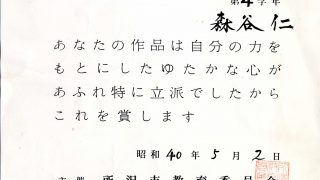 第4学年
森谷仁
あなたの作品は自分の力を
もとにしたゆたかな心が
あふれ特に立派でしたから
これを賞します
昭和40年5月2日
主催 所沢市教育委員会